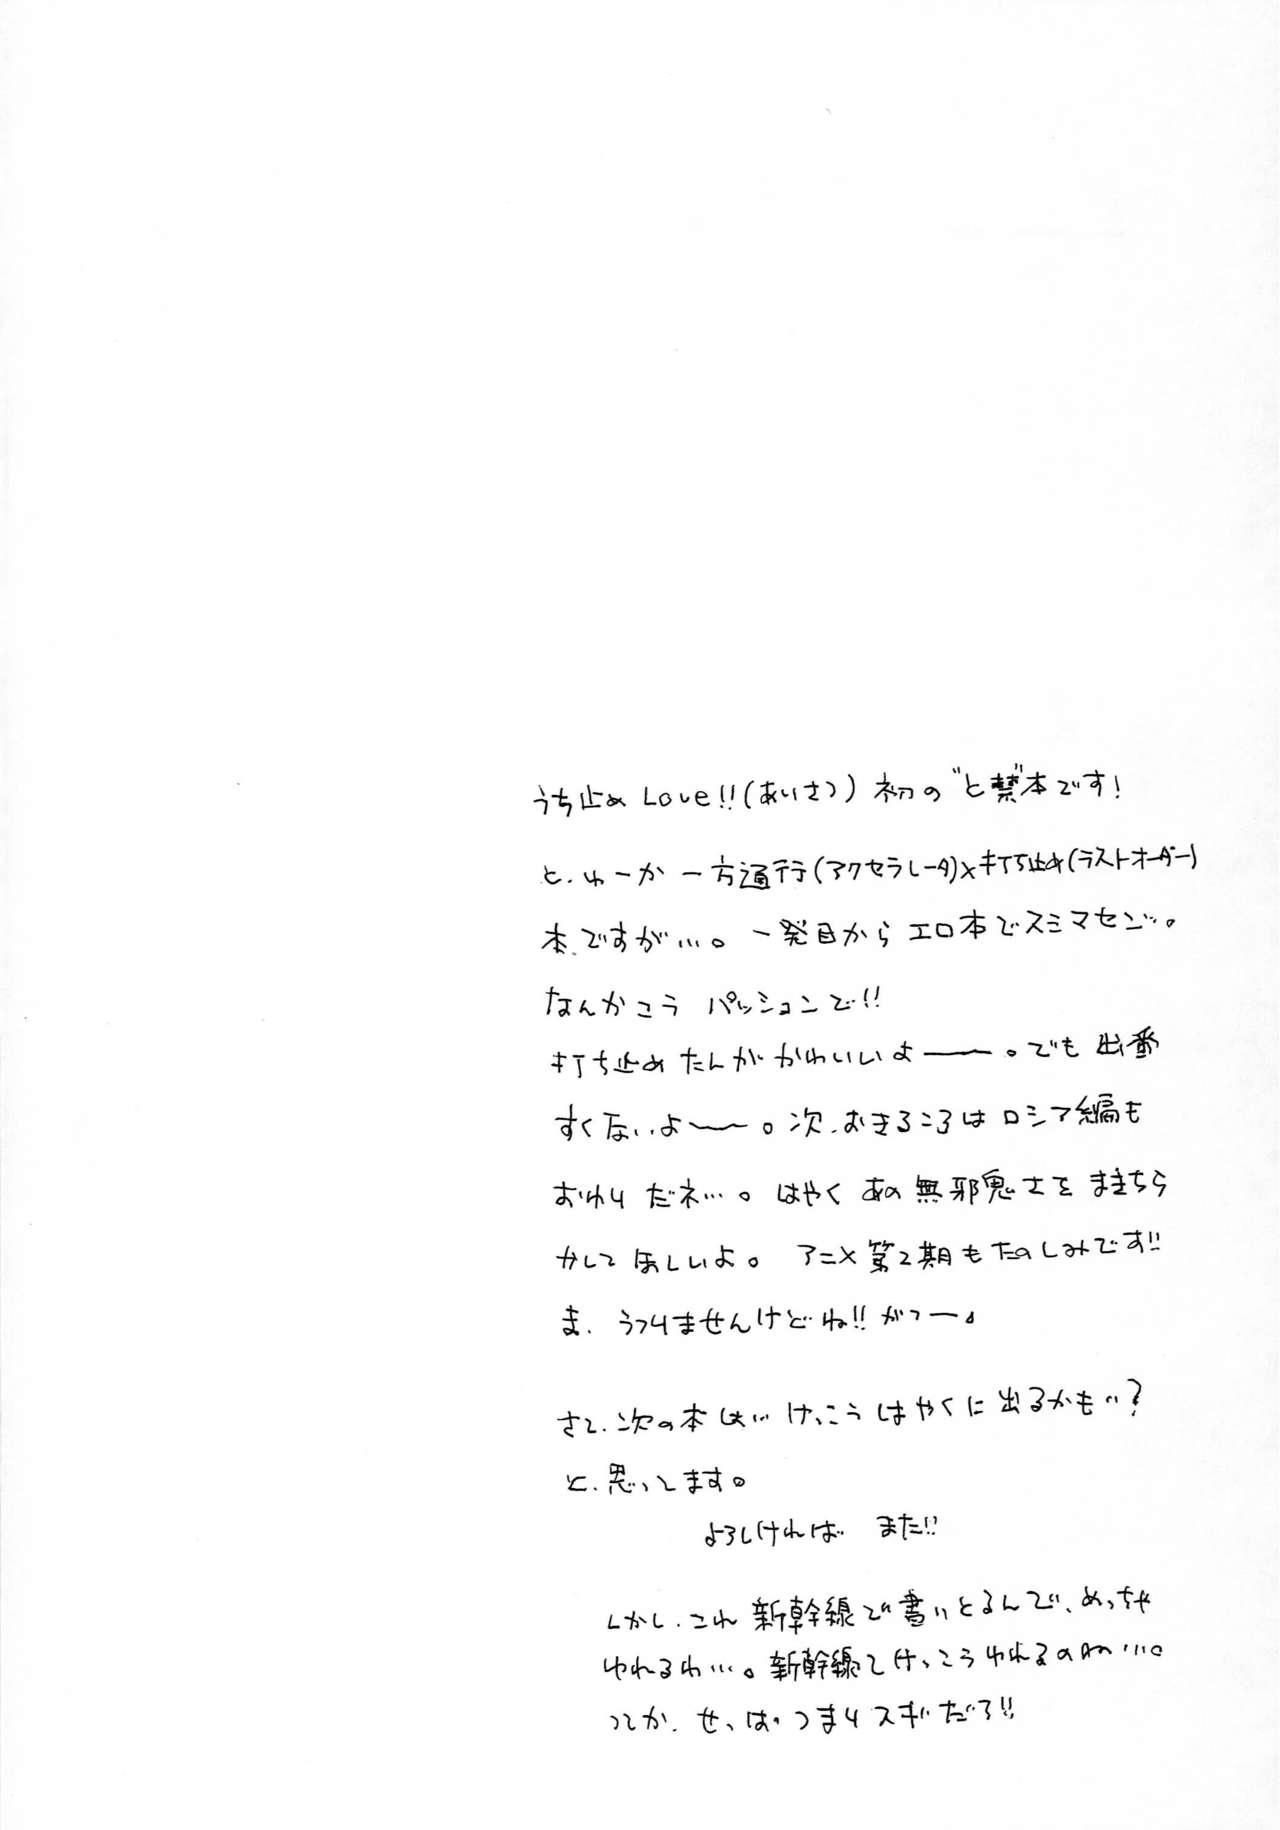 うち止め Love!!(あいさつ) 初の"と禁"本です!
と、ゆーか 一方通行(アクセラレータ)×打ち止め(ラストオーダー)
本、ですが…。一発目から エロ本でスミマセン…。
なんかこう パッションで!!
打ち止めたんが かわいいよ――。でも 出番
すくないよ――。次、おきるころは ロシア編も
おわりだネ…。はやく あの 無邪鬼さを まきちら
かして ほしいよ。 アニメ 第2期も たのしみです!!
ま、うつりませんけどね!! がつー。
さて、次の本は… けっこう はやくに 出るかも…?
と、思ってます。
よろしければ また!!
しかし、これ 新幹線で 書いとるんで、めっちゃ
ゆれるわ…。新幹線て けっこう ゆれるのね…。
つてか、せっぱつまりスギだろ!!